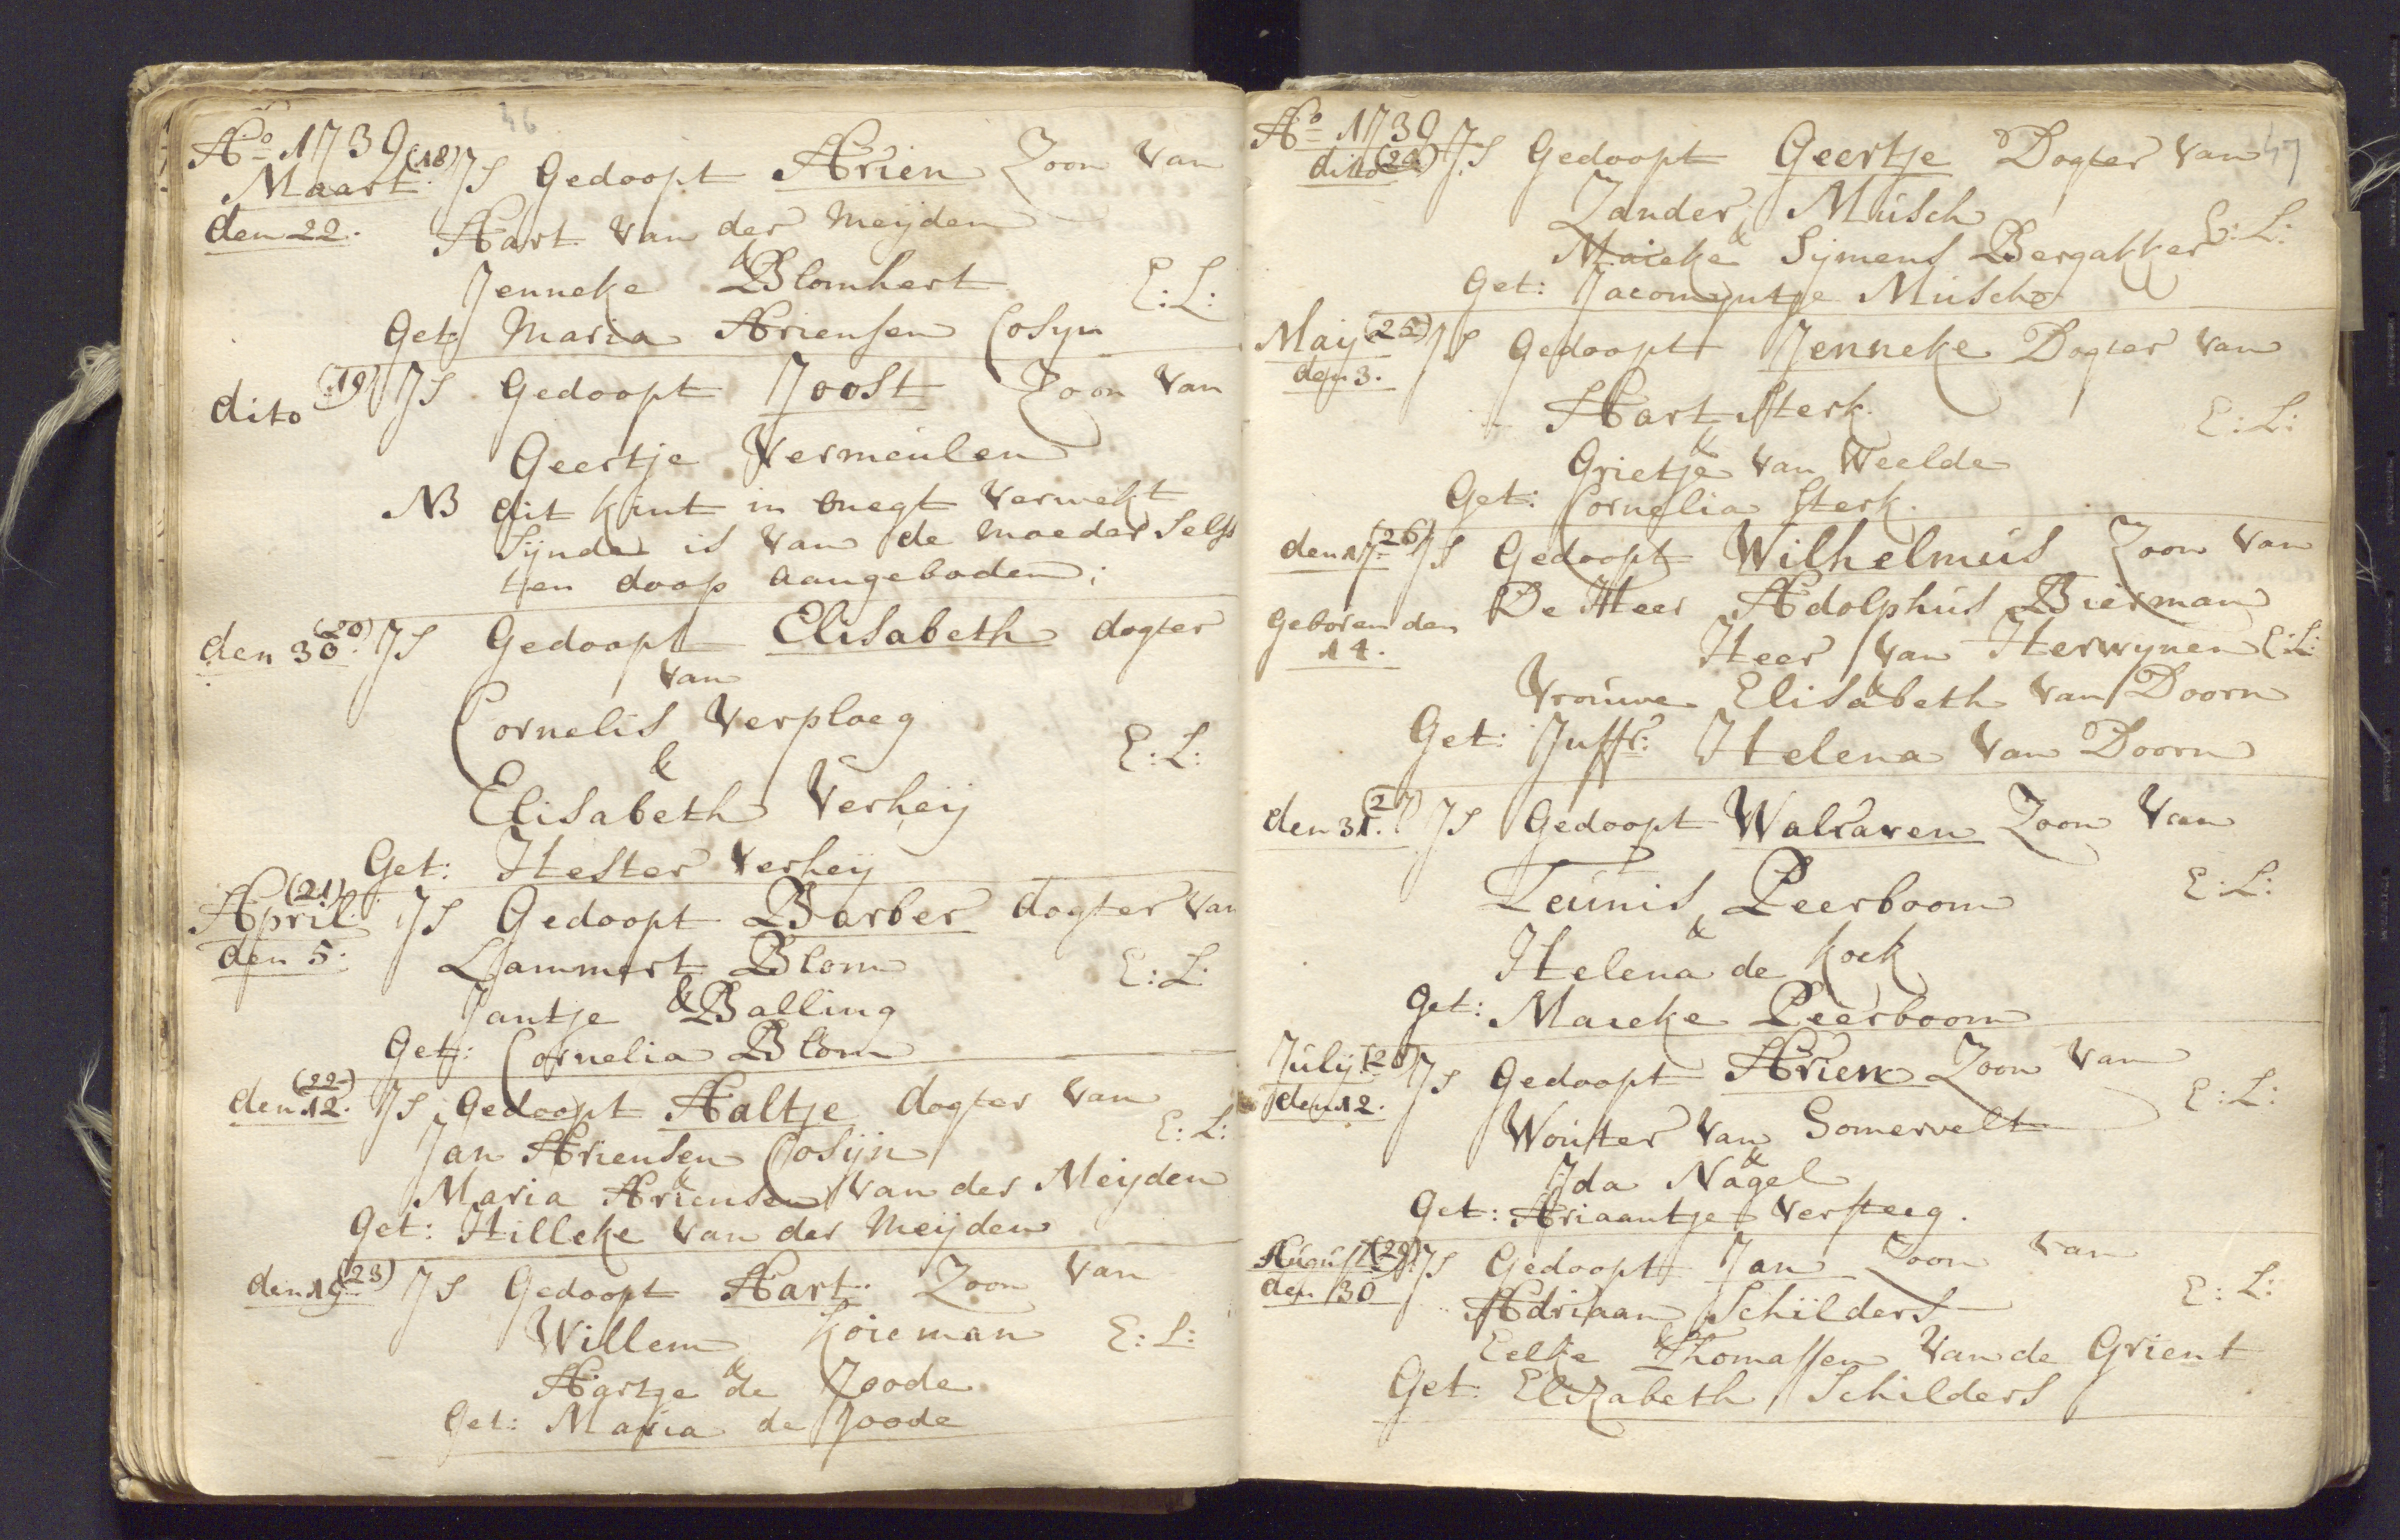 46
Ao 1739
Maart (18) Js Gedoopt Arien Zoon van
den 22. Aart van der Meijden
&
Jenneke Blomhert E: L:
Get: Maria Ariensen Cosyn
dito (19) Js Gedoopt Joost Zoon van
Geertje Vermeulen
NB dit kint in onegt verwekt
Sijnde is van de moeder selfs
ten doop aangeboden;
den 30. (20) Js Gedoopt Elisabeth dogter
van
Cornelis Verploeg
& E: L:
Elisabeth Verheij
Get: Hester Verheij
April (21) Js Gedoopt Barber dogter van
den 5. Lammert Blom E: L:
&
Jantje Balling
Get: Cornelia Blom
den 12. (22) Js Gedoopt Aaltje dogter van
Jan Ariensen Cosijn E: L:
&
Maria Ariensen van der Meijden
Get: Hilleke van der Meijden
den 19 (23) Js Gedoopt Aart Zoon van
Willem Koieman E: L:
&
Aartge de Joode
Get: Maria de Joode
47
Ao 1739
ditto (24) Js Gedoopt Geertje Dogter van
Zander Musch
& E: L:
Maieke Sijmens Bergakker
Get: Jacomyntje Musch
Maij (25) Js Gedoopt Jenneke Dogter van
den 3. Aart Sterk E: L:
&
Grietje van Weelde
Get: Cornelia Sterk.
den 17 (26) Js Gedoopt Wilhelmus Zoon van
geboren den De Heer Adolphus Bierman
14. Heer van Herwynen E: L:
&
Vrouwe Elisabeth van Doorn
Get: Juffr: Helena van Doorn
den 31. (27) Js Gedoopt Walraven Zoon van
Teunis Peerboom E: L:
&
Helena de Kock
Get: Maieke Peerboom
July (28) Js Gedoopt Arien Zoon van
den 12. Wouter van Somervelt E: L:
&
Ida Nagel
Get: Ariaantje Versteeg.
August (29) Js Gedoopt Jan Zoon van
den 30 Adriaan Schilders E: L:
&
Eelke Thomassen van de Grient
Get: Elizabeth Schilders